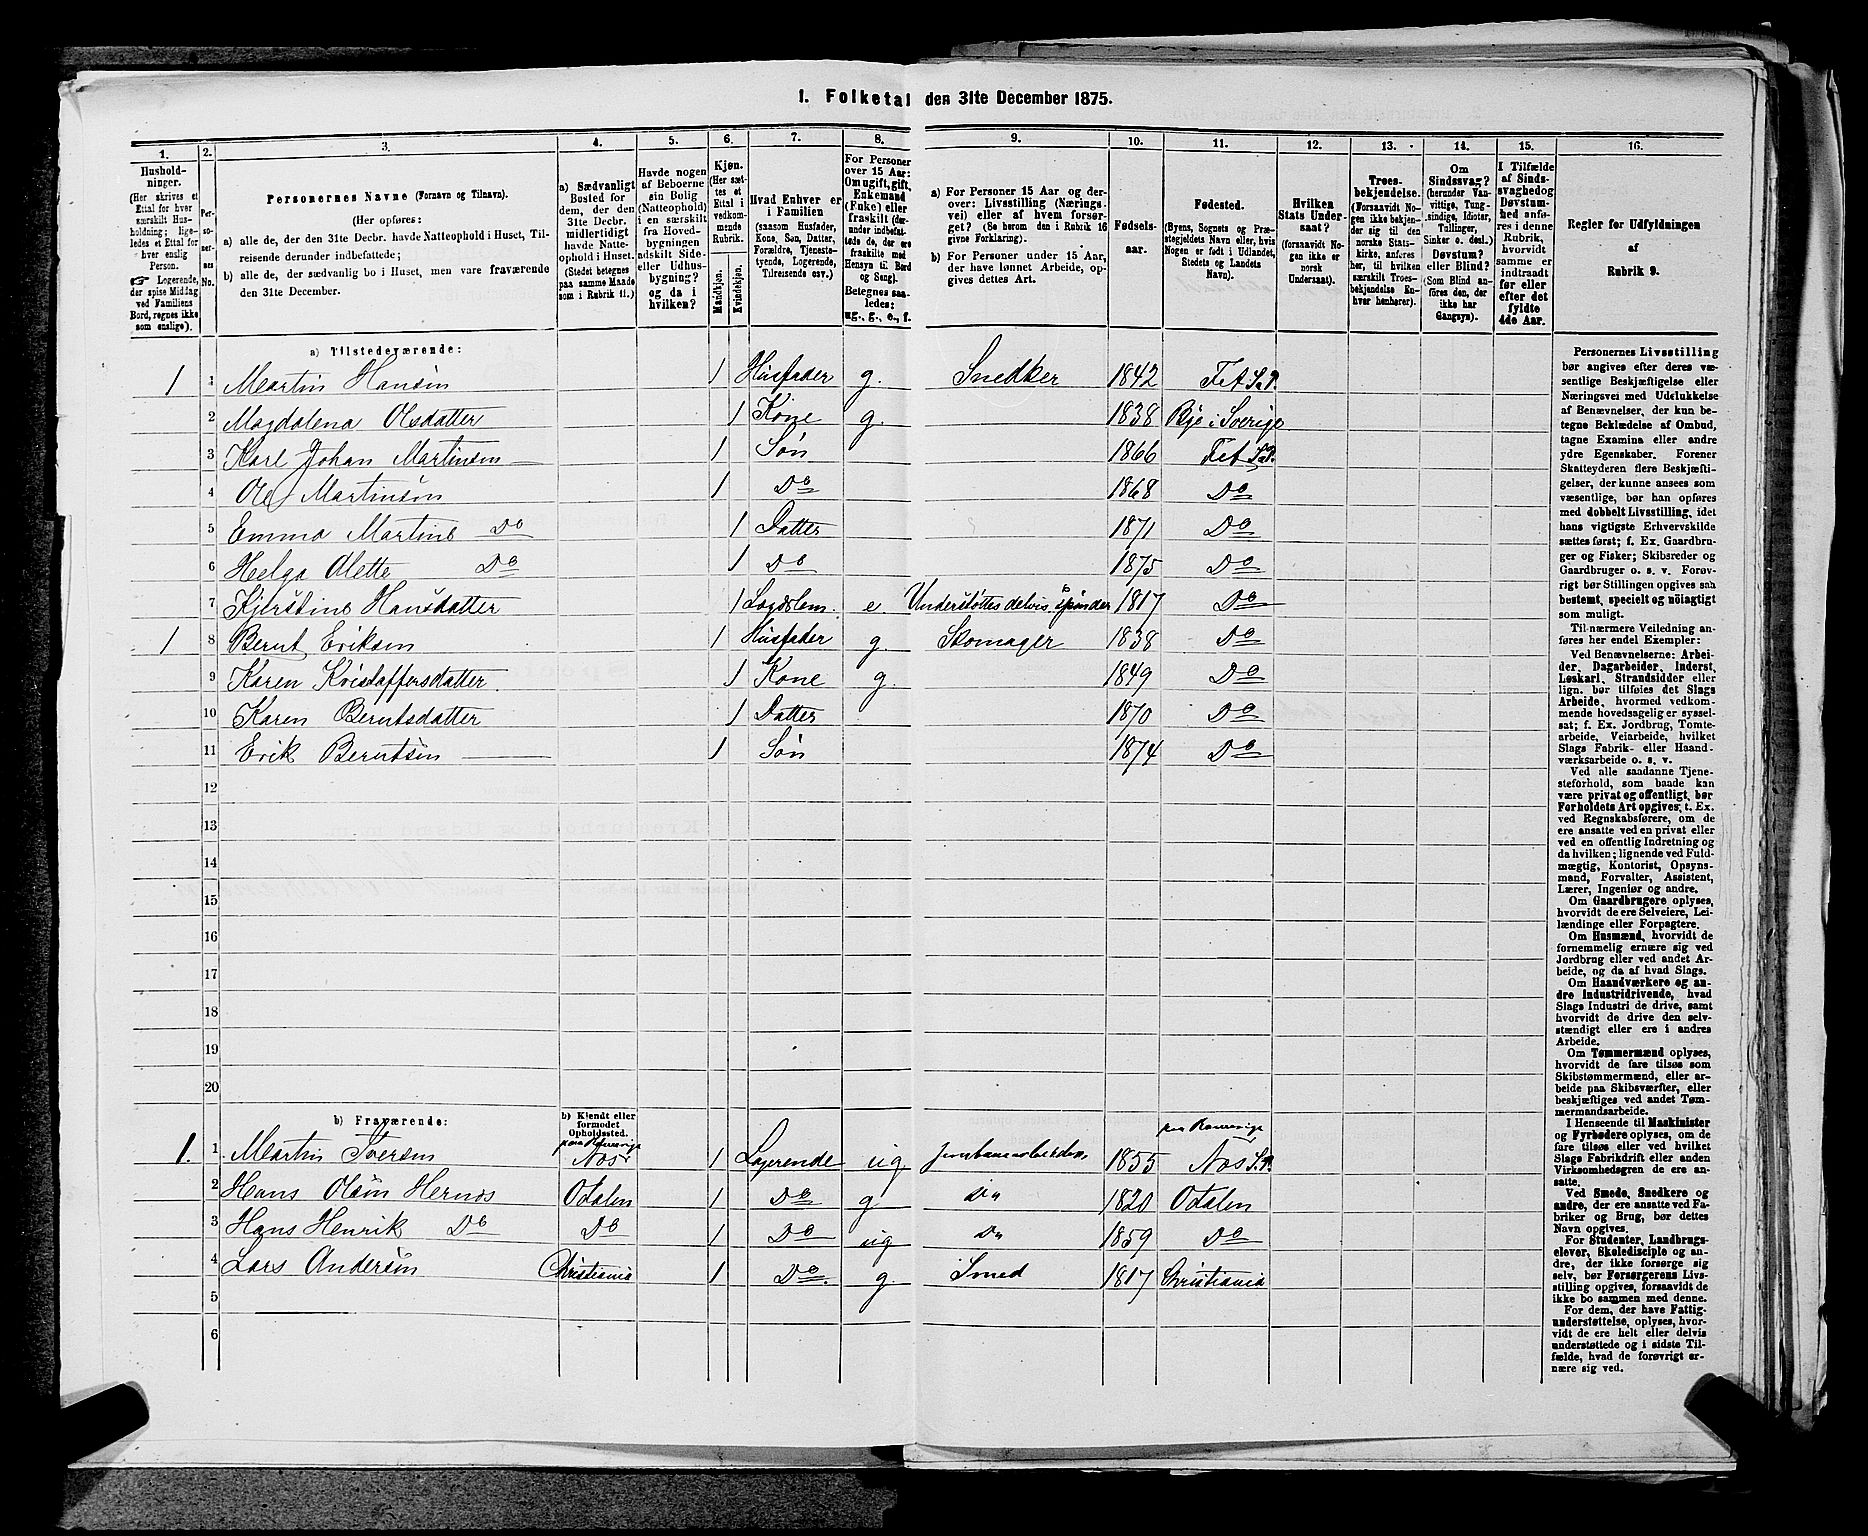 1. Folketal den 31te December 1875.
1. 2. 3. 4. 5. 6. 7. 8. 9. 10. 11. 12. 13. 14. 15. 16.
Husholdninger.
(Her skrives et
Ettal for hver
særskilt Husholdning;
ligeledes et Ettal for
hver enslig
Person.
☞ Logerende,
der spise Middag
ved Familiens
Bord, regnes ikke
som enslige).
Personernes No.
Personernes Navne (Fornavn og Tilnavn).
(Her opføres:
a) alle de, der den 31te Decbr. havde Natteophold i Huset, Tilreisende derunder indbefattede;
b) alle de, der sædvanlig bo i Huset, men vare fraværende
den 31te December.
a) Sædvanligt
Bosted for
dem, der den
31te Decbr.
midlertidigt
havde Natteophold
i Huset.
(Stedet betegnes
paa samme Maade
som i Rubrik 11.)
Havde nogen
af Beboerne
sin Bolig
(Natteophold)
i en særskilt
fra Hovedbygningen
adskilt Side-
eller Udhusbygning?
og da i
hvilken?
Kjøn.
(Her sættes
et
Ettal i
vedkommende
Rubrik.
Mandkjøn.
Kvindekjøn.
Hvad Enhver er
i Familien
(saasom Husfader,
Kone, Søn, Datter,
Forældre, Tjenestetyende,
Logerende,
Tilreisende osv.)
For Personer
over 15 Aar:
Om ugift, gift,
Enkemand
(Enke) eller
fraskilt (derunder
indbefattede
de, der ere
fraskilte med
Hensyn til Bord
og Seng).
Betegnes saaledes:
ug., g., e., f.
a) For Personer 15 Aar og derover: Livsstilling (Næringsvei) eller af hvem forsørget? (Se herom den i Rubrik 16 givne Forklaring).
b) For Personer under 15 Aar, der have lønnet Arbeide, opgives dettes Art.
Fødselsaar.
Fødested.
(Byens, Sognets og Præstegjeldets Navn eller, hvis Nogen er født i Udlandet, Stedets og Landets Navn).
Hvilken
Stats Undersaat?
(forsaavidt Nogen
ikke er
norsk
Undersaat).
Troesbekjendelse.
(Forsaavidt Nogen
ikke bekjender
sig til den
norske Statskirke,
anføres
her, til hvilken
særskilt Troesbekjendelse
Enhver
henhører).
Om
Sindssvag?
(herunder Vanvittige,
Tungsindige,
Idioter,
Tullinger,
Sinker o. desl.)
Døvstum?
eller Blind?
(Som Blind anføres
den, der
ikke har
Gangsyn).
I Tilfælde
af Sindssvaghed
og
Døvstumhed
anføres
i denne
Rubrik,
hvorvidt
samme er
indtraadt
før eller
efter det
fyldte
4de Aar.
Regler for Udfyldningen
af
Rubrik 9.
a) Tilstedeværende:
1 1 Martin Hansen 1 Husfader g. Snedker 1842 Fet S.P.
2 Magdalena Olsdatter 1 Kone g. 1838 i Sverige
3 Karl Johan Martinsen 1 Søn 1866 Fet S.P.
4 Ole Martinsøn 1 Do 1868 Do
5 Emma Martine Do 1 Datter 1871 Do
6 Helga Olette Do 1 Do 1875 Do
7 Kjerstine Hansdatter 1 Lægdslem. e Understøttes delvis 1817 Do
1 8 Berut Eriksen 1 Husfader g. Skomager 1838 Do
9 Karen Kristoffersdatter 1 Kone g. 1849 Do
10 Karen Berutsdatter 1 Datter 1870 Do
11 Erik Berutsen 1 Søn 1874 Do
12
13
14
15
16
17
18
19
20
b) Fraværende:
b) Kjendt eller
formodet
Opholdssted.
1. 1 Martin Iversen Næs 1 Logerende ug. Jernbanearbeider 1855 paa Romerige Næs S.P.
2 Hans Olsøn Hernæs Odalen 1 Do g Do 1820 Odalen
3 Hans Henrik Do Do 1 Do ug Do 1859 Do
4 Lars Andersøn Christiania 1 Do. g. Smed 1817 Christiania
5
6
Personernes Livsstilling
bør angives efter deres væsentlige
Beskjæftigelse eller
Næringsvei med Udelukkelse
af Benævnelser, der kun betegne
Beklædelse af Ombud,
tagne Examina eller andre
ydre Egenskaber. Forener
Skatteyderen flere Beskjæftigelser,
der kunne ansees som
væsentlige, bør han opføres
med dobbelt Livsstilling, idet
hans vigtigste Erhvervskilde
sættes først; f. Ex. Gaardbruger
og Fisker; Skibsreder og
Gaardbruger o. s. v. Forøvrigt
bør Stillingen opgives saa
bestemt, specielt og nöiagtigt
som muligt.
Til nærmere Veiledning anføres
her endel Exempler:
Ved Benævnelserne: Arbeider,
Dagarbeider, Inderst,
Løskarl, Strandsidder eller
lign. bør tilføies det Slags
Arbeide, hvormed vedkommende
hovedsagelig er sysselsat;
f. Ex. Jordbrug, Tomtearbeide,
Veiarbeide, hvilket
Slags Fabrik- eller Haandværksarbeide
o. s. v.
Ved alle saadanne Tjenesteforhold,
som baade kan
være privat og offentligt, bør
Forholdets Art opgives, t. Ex.
ved Regnskabsførere, om de
ere ansatte ved en privat eller
ved en offentlig Indretning og
da hvilken; lignende ved Fuldmægtig,
Kontorist, Opsynsmand,
Forvalter, Assistent,
Lærer, Ingeniør og andre.
Om Gaardbrugere oplyses,
hvorvidt de ere Selveiere, Leilændinge
eller Forpagtere.
Om Husmænd, hvorvidt de
fornemmelig ernære sig ved
Jordbrug eller ved andet Arbeide,
og da af hvad Slags.
Om Haandværkere og andre
industridrivende, hvad
Slags Industri de drive, samt
hvorvidt de drive den selvstændigt
eller ere i andres
Arbeide.
Om Tømmermænd oplyses,
hvorvidt de fare tilsøs som
Skibstømmermænd, eller arbeide
paa Skibsværfter, eller
beskjæftiges ved andet Tømmermandsarbeide.
I Henseende til Maskinister
og Fyrbødere oplyses, om de
fare tilsøs eller ved hvilket
Slags Fabrikdrift eller anden
Virksomhedsgren de ere ansatte.
Ved Smede, Snedkere og
andre, der ere ansatte ved Fabriker
og Brug, bør dettes
Navn opgives.
For Studenter, Landbrugselever,
Skoledisciple og andre,
der ikke forsørge sig
selv, bør Forsørgerens Livsstilling
opgives, forsaavidt de
ikke bo sammen med denne.
For dem, der have Fattigunderstøttelse,
oplyses, hvorvidt
de ere helt eller delvis
understøttede og i sidste Tilfælde,
hvad de forøvrigt ernære
sig ved.